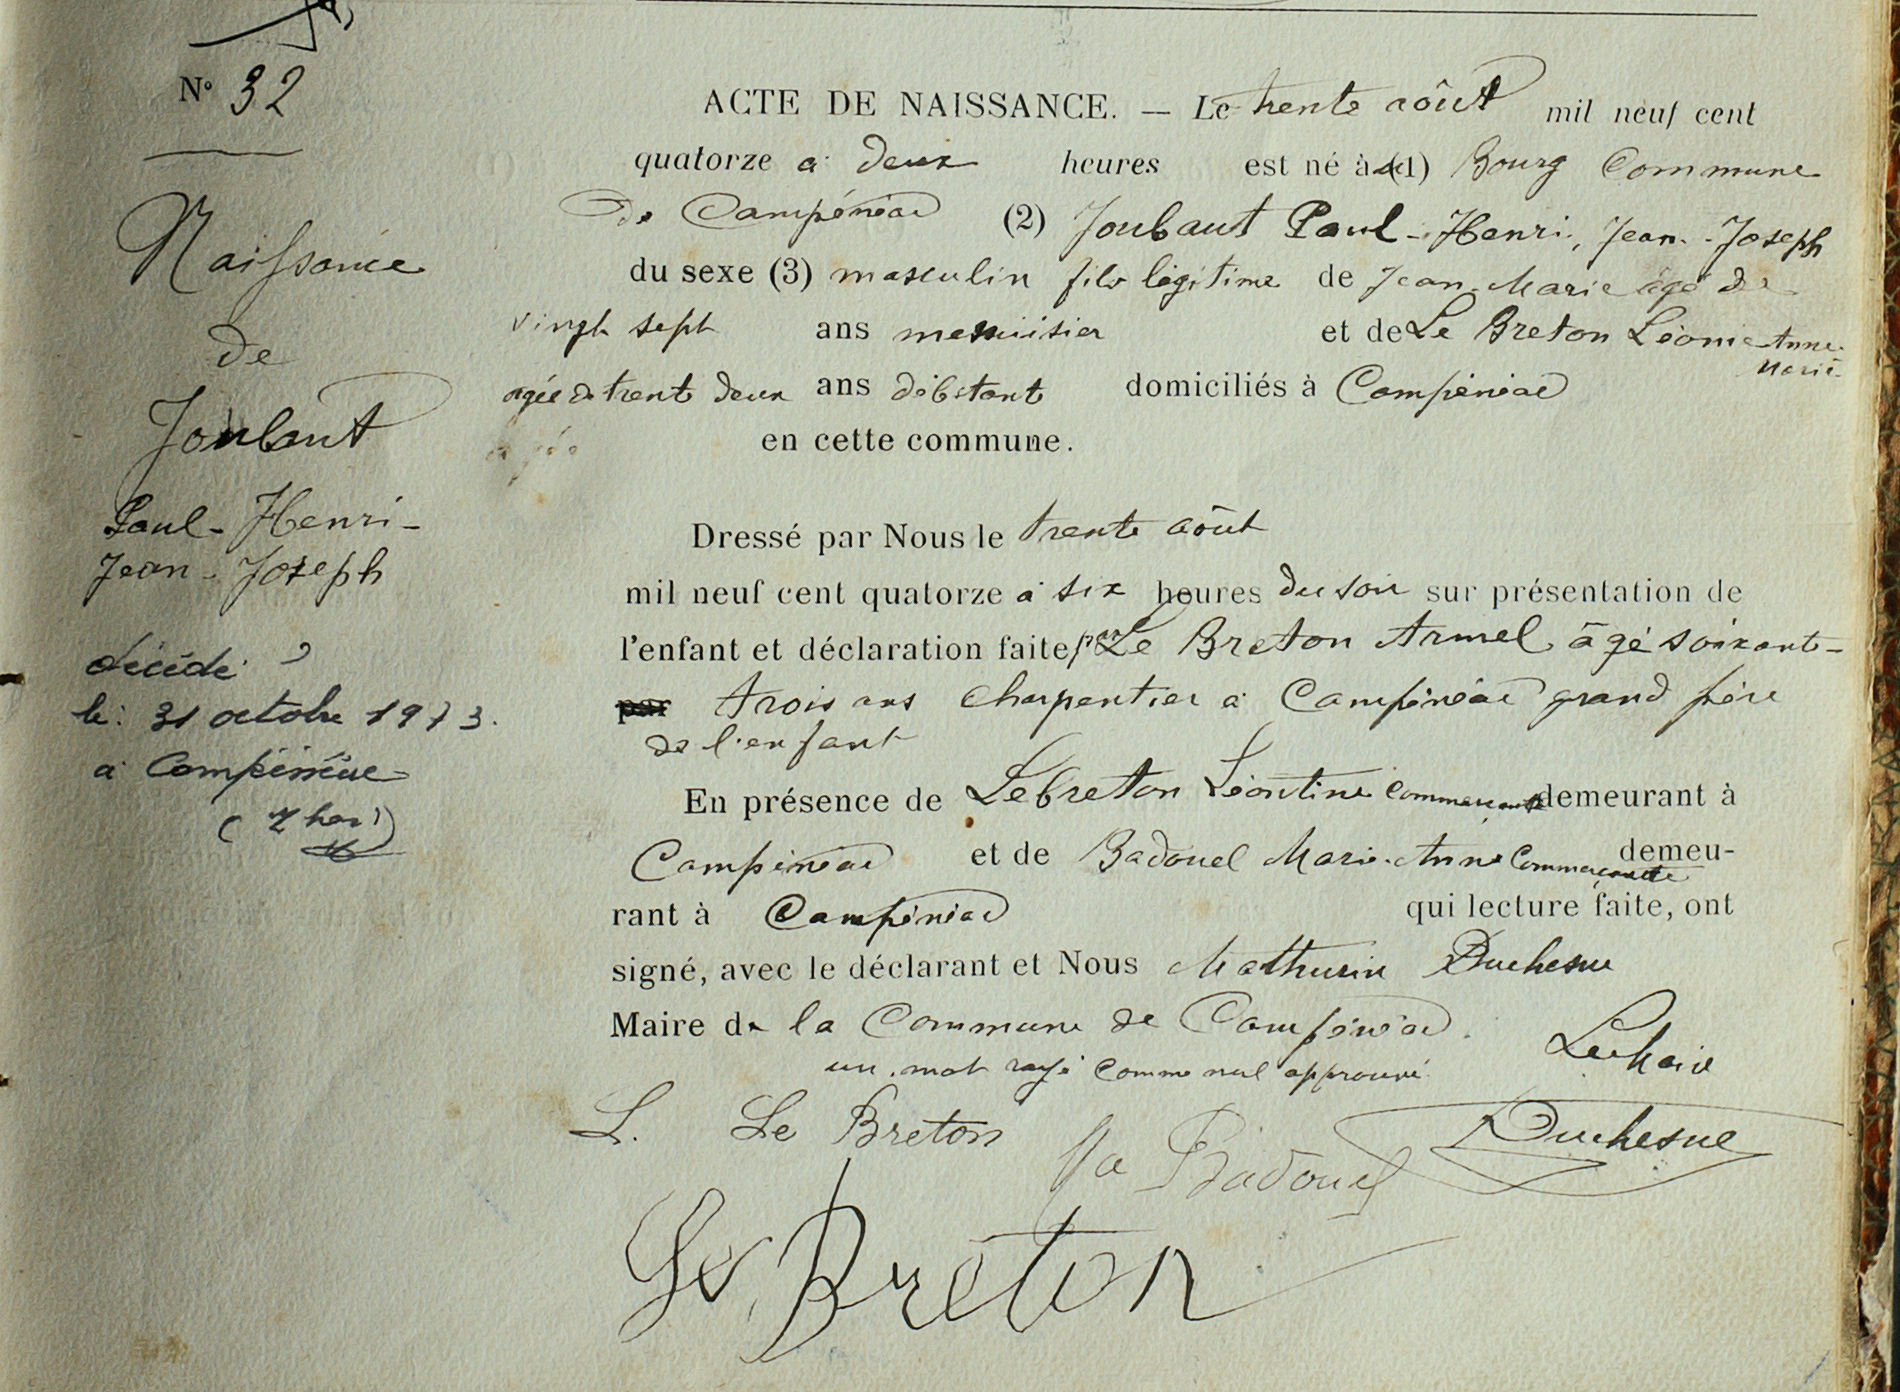 N° 32
Naissance
de
Joubaut
Paul-Henri-
Jean-Joseph
décédé
le: 31 octobre 1973.
à Campénéac
ACTE DE NAISSANCE. — Le trente août mil neuf cent
quatorze à deux heures est né à (1) Bourg Commune
de Campénéac (2) Joubaut Paul-Henri, Jean-Joseph
du sexe (3) masculin fils légitime de Jean-Marie âgé de
vingt sept ans menuisier et de Le Breton Léonie Anne
Marie
agée de trente deux ans débitante domiciliés à Campénéac
en cette commune.
Dressé par Nous le trente août
mil neuf cent quatorze à six heures du soir sur présentation de
l'enfant et déclaration faite par Le Breton Armel âgé soixante-
par trois ans charpentier à Campénéac grand père
de l'enfant
En présence de Lebreton Léontine commerçante demeurant à
Campénéac et de Badouel Marie-Anne Commerçante demeu-
rant à Campénéac qui lecture faite, ont
signé, avec le déclarant et Nous Mathurin Duchesne
Maire de la Commune de Campénéac.
un mot rayé comme nul approuvé
Le Maire
L. Le Breton Badouel Duchesne
Le Breton